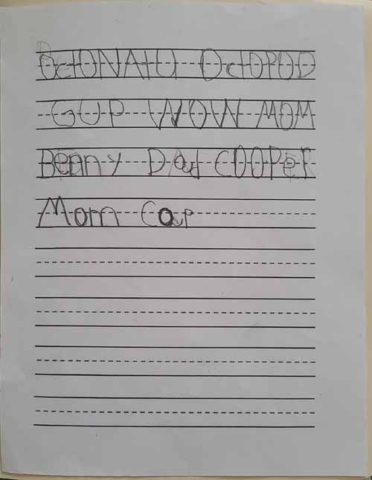 OctONAtU OctOPOD
GUP WOW MOM
Benny Dad COOPer
Mom Cap